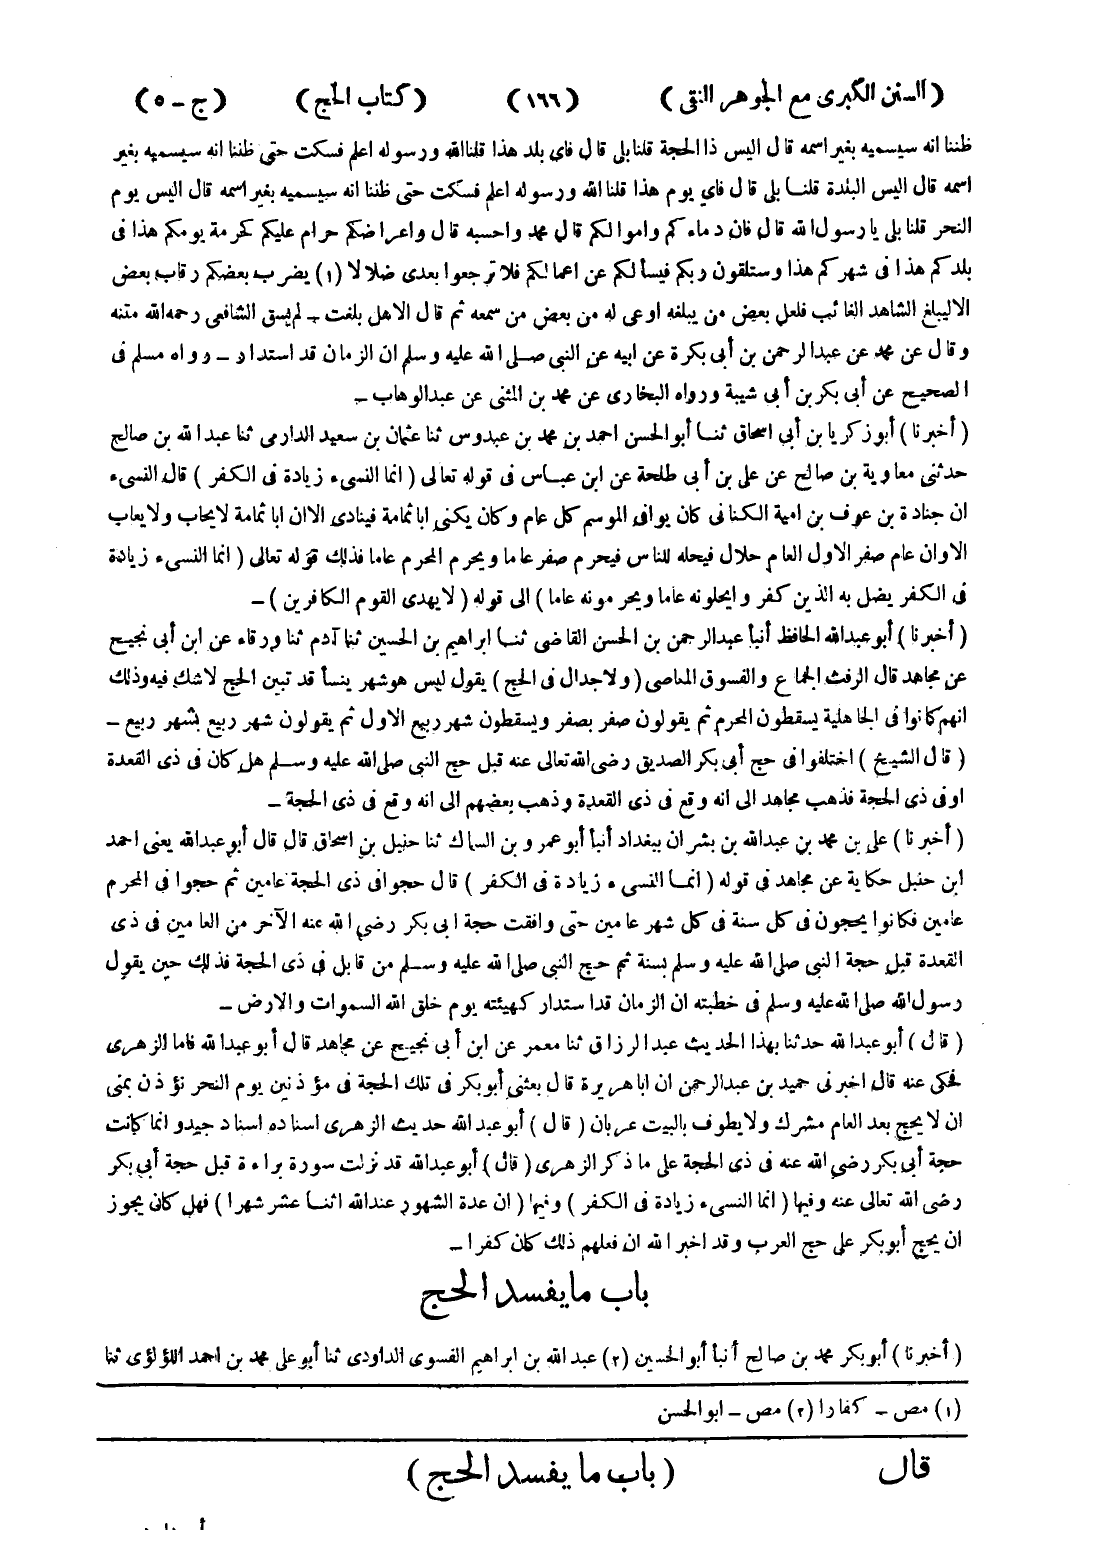 (السنن الكبرى مع الجوهر النقى) (١٦٦) (كتاب الحج) (ج - ٥)
ظننا انه سيسميه بغير اسمه قال اليس ذا الحجة قلنا بلى قال فاي بلد هذا قلنا الله ورسوله اعلم فسكت حتى ظننا انه سيسميه بغير
اسمه قال اليس البلدة قلنا بلى قال فاي يوم هذا قلنا الله ورسوله اعلم فسكت حتى ظننا انه سيسميه بغير اسمه قال اليس يوم
النحر قلنا بلى يا رسول الله قال فان دماءكم واموالكم قال محمد واحسبه قال واعراضكم حرام عليكم كحرمة يومكم هذا فى
بلدكم هذا فى شهركم هذا وستلقون ربكم فيسألكم عن اعمالكم فلا ترجعوا بعدى ضلالا (١) يضرب بعضكم رقاب بعض
الا ليبلغ الشاهد الغائب فلعل بعض من يبلغه اوعى له من بعض من سمعه ثم قال الاهل بلغت ــ لم يسق الشافعى رحمه الله متنه
وقال عن محمد عن عبد الرحمن بن أبى بكرة عن ابيه عن النبى صلى الله عليه وسلم ان الزمان قد استدار ــ رواه مسلم فى
الصحيح عن أبى بكر بن أبى شيبة ورواه البخارى عن محمد بن المثنى عن عبد الوهاب ــ
(أخبرنا) أبو زكريا بن أبي اسحاق ثنا أبو الحسن احمد بن محمد بن عبدوس ثنا عثمان بن سعيد الدارمى ثنا عبد الله بن صالح
حدثنى معاوية بن صالح عن على بن أبى طلحة عن ابن عباس فى قوله تعالى (انما النسىء زيادة فى الكفر) قال النسىء
ان جنادة بن عوف بن امية الكنانى كان يوافى الموسم كل عام وكان يكنى ابا ثمامة فينادى الا ان ابا ثمامة لا يحاب ولا يعاب
الا وان عام صفر الاول العام حلال فيحله للناس فيحرم صفر عاما ويحرم المحرم عاما فذلك قوله تعالى (انما النسىء زيادة
فى الكفر يضل به الذين كفروا يحلونه عاما ويحرمونه عاما) الى قوله (لا يهدى القوم الكافرين) ــ
(أخبرنا) أبو عبد الله الحافظ أنبأ عبد الرحمن بن الحسن القاضى ثنا ابراهيم بن الحسين ثنا آدم ثنا ورقاء عن ابن أبى نجيح
عن مجاهد قال الرفث الجماع والفسوق المعاصى (ولا جدال فى الحج) يقول ليس هو شهر ينسأ قد تبين الحج لا شك فيه وذلك
انهم كانوا فى الجاهلية يسقطون المحرم ثم يقولون صفر بصفر ويسقطون شهر ربيع الاول ثم يقولون شهر ربيع بشهر ربيع ــ
(قال الشيخ) اختلفوا فى حج أبى بكر الصديق رضى الله تعالى عنه قبل حج النبى صلى الله عليه وسلم هل كان فى ذى القعدة
او فى ذى الحجة فذهب مجاهد الى انه وقع فى ذى القعدة وذهب بعضهم الى انه وقع فى ذى الحجة ــ
(أخبرنا) على بن محمد بن عبد الله بن بشران ببغداد أنبأ أبو عمرو بن السماك ثنا حنبل بن اسحاق قال قال أبو عبد الله يعنى احمد
ابن حنبل حكاية عن مجاهد فى قوله (انما النسىء زيادة فى الكفر) قال حجوا فى ذى الحجة عامين ثم حجوا فى المحرم
عامين فكانوا يحجون فى كل سنة فى كل شهر عامين حتى وافقت حجة ابى بكر رضي الله عنه الآخر من العامين فى ذى
القعدة قبل حجة النبى صلى الله عليه وسلم بسنة ثم حج النبى صلى الله عليه وسلم من قابل فى ذى الحجة فذلك حين يقول
رسول الله صلى الله عليه وسلم فى خطبته ان الزمان قد استدار كهيئته يوم خلق الله السموات والارض ــ
(قال) أبو عبد الله حدثنا بهذا الحديث عبد الرزاق ثنا معمر عن ابن أبى نجيح عن مجاهد قال أبو عبد الله فاما الزهرى
فحكى عنه قال اخبرنى حميد بن عبد الرحمن ان ابا هريرة قال بعثنى أبو بكر فى تلك الحجة فى مؤذنين يوم النحر نؤذن بمنى
ان لا يحج بعد العام مشرك ولا يطوف بالبيت عريان (قال) أبو عبد الله حديث الزهرى اسناده اسناد جيد وانما كانت
حجة أبى بكر رضى الله عنه فى ذى الحجة على ما ذكر الزهرى (قال) أبو عبد الله قد نزلت سورة براءة قبل حجة أبى بكر
رضى الله تعالى عنه وفيها (انما النسىء زيادة فى الكفر) وفيها (ان عدة الشهور عند الله اثنا عشر شهرا) فهل كان يجوز
ان يحج أبو بكر على حج العرب وقد اخبر الله ان فعلهم ذلك كان كفرا ــ
باب ما يفسد الحج
(أخبرنا) أبو بكر محمد بن صالح أنبأ أبو الحسين (٢) عبد الله بن ابراهيم الفسوى الداودى ثنا أبو على محمد بن احمد اللؤلؤى ثنا
(١) مص ــ كفارا (٢) مص ــ ابو الحسن
قال (باب ما يفسد الحج)